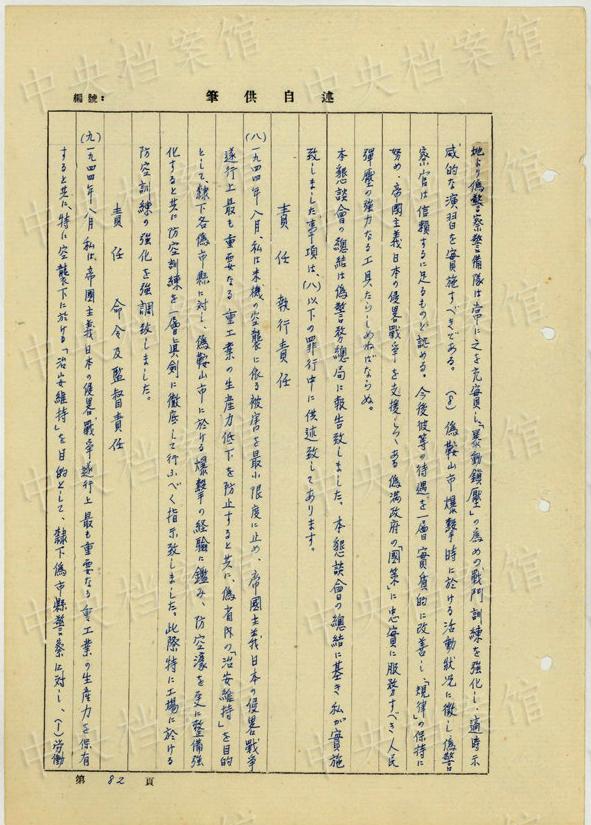 編號：
筆供自述
地より偽警察警備隊は常に之を充実し「暴動鎮壓」の為めの戦鬥訓練を強化し、適時示
威的な演習を実施すべきである。(8) 偽鞍山市爆撃時に於ける活動状況に徴し偽警
察官は信頼するに足るものと認める。今後彼等の待遇を一層実質的に改善し「規律」の保持に
努め、帝國主義日本の侵畧戦争を支援しつゝある偽満政府の「國策」に忠実に服務すべき人民
弾壓の強力なる工具たらしめねばならぬ。
本懇談會の總結は偽警務總局に報告致しました。本懇談會の總結に基き私が実施
致しました事項は、(八)以下の罪行中に供述致してあります。
責任 執行責任
(八)一九四四年八月、私は米機の空襲に依る被害を最小限度に止め、帝國主義日本の侵畧戦争
遂行上最も重要なる重工業の生産力低下を防止すると共に、偽省内の「治安維持」を目的
として、隷下各偽市縣に対し、偽鞍山市に於ける爆撃の経験に鑑み、防空濠を更に整備強
化すると共に防空訓練を一層真剣に徹底して行ふべく指示致しました。此際特に工場に於ける
防空訓練の強化を強調致しました。
責任 命令及監督責任
(九)一九四四年八月私は、帝國主義日本の侵畧戦争遂行上最も重要なる重工業の生産力を保有
すると共に、特に空襲下に於ける「治安維持」を目的として、隷下偽市縣警察に対し、(1)労働
第 82 頁
中央档案馆